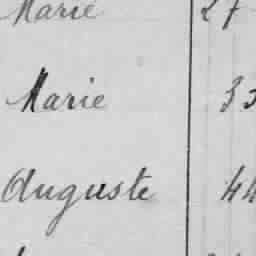 Marie 27
Marie 35
Auguste 44